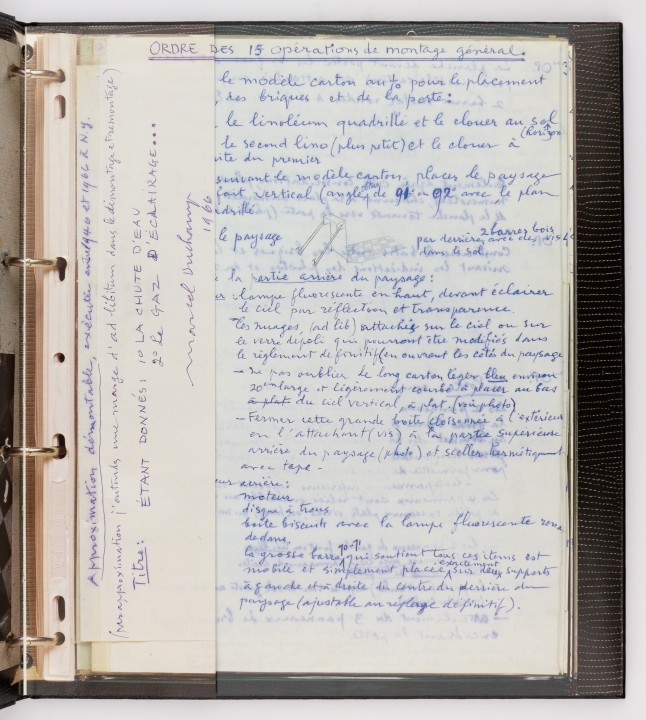 ORDRE DES 15 opérations de montage général.
le modèle carton au 1/10 pour le placement
des briques et de la porte:
le linoléum quadrillé et le clouer au sol
(horizon
le second lino (plus petit) et le clouer à
du premier
suivant le modèle carton, placer le paysage
vertical (angle de 91° ou 92° avec le plan
le paysage
par derrière avec des
2 barres bois
dans le sol
la partie arrière du paysage:
lampe fluorescente en haut, devant éclairer
le ciel par réflection et transparence.
les nuages, (ad lib) attachés sur le ciel ou sur
le verre dépoli qui pourront être modifiés dans
le règlement définitif en ouvrant les côtés du paysage
- Ne pas oublier le long carton léger bleu environ
20cm large et légèrement courbé à placer au bas
à plat du ciel vertical, à plat. (voir photo)
- Fermer cette grande boîte cloisonnée à l'extérieur
en l'attachant (vis) à la partie supérieure
arrière du paysage (photo) et sceller hermétiquement
avec tape -
arière:
moteur
disque à trous
boîte biscuits avec la lampe fluorescente ronde
dedans.
la grosse barre qui soutient tous ces items est
mobile et simplement placée exactement sur deux supports
à gauche et à droite du centre du derrière du
paysage (ajustable au réglage définitif).
Approximation démontable, exécutée entre 1946 et 1966 à N.Y.
(par approximation j'entends une marge d'ad libitum dans le démontage et remontage)
Titre: ÉTANT DONNÉS: 1° LA CHUTE D'EAU
2° LE GAZ D'ÉCLAIRAGE...
Marcel Duchamp
1966